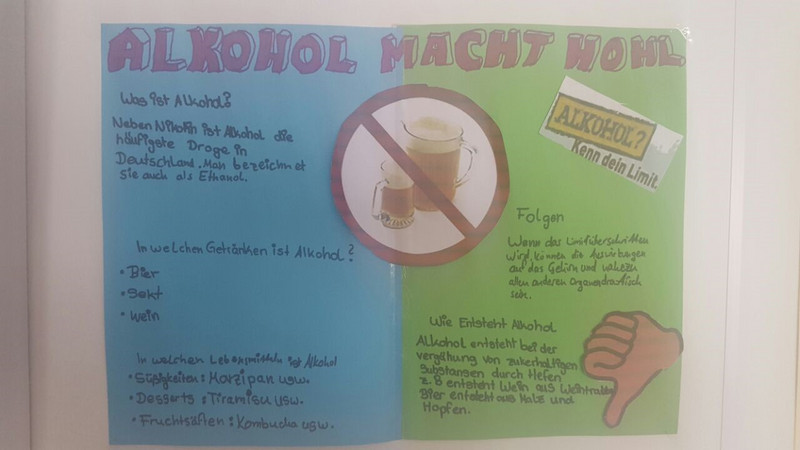 ALKOHOL MACHT HOHL
Was ist Alkohol?
Neben Nikotin ist Alkohol die
häufigste Droge in
Deutschland. Man bezeichnet
sie auch als Ethanol.
In welchen Getränken ist Alkohol?
• Bier
• Sekt
• Wein
In welchen Lebensmitteln ist Alkohol
• Süßigkeiten: Marzipan usw.
• Desserts: Tiramisu usw.
• Fruchtsäften: Kombucha usw.
ALKOHOL?
Kenn dein Limit.
Folgen
Wenn das Limit überschritten
wird, können die Auswirkungen
auf das Gehirn und nahezu
allen anderen Organen drastisch
sein.
Wie Entsteht Alkohol
Alkohol entsteht bei der
vergährung von zukerhaltigen
Substansen durch Hefen
z.B entsteht Wein aus Weintrauben
Bier entsteht aus Malz und
Hopfen.